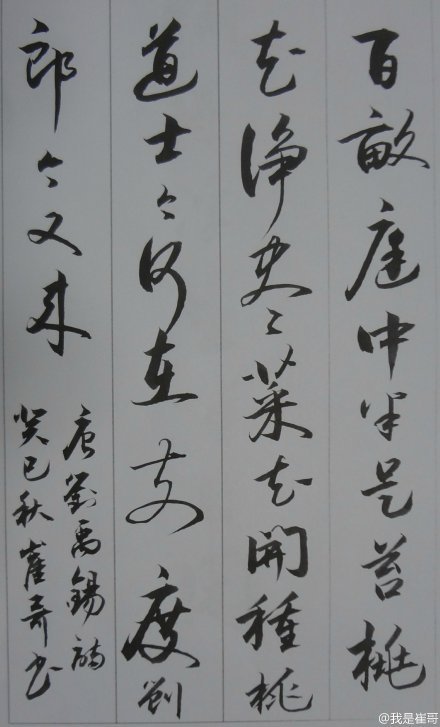 百畝庭中半是苔桃
花淨尽菜花開種桃
道士今何在前度劉
郎今又来
唐劉禹錫詩
癸巳秋崔书
@我是崔哥